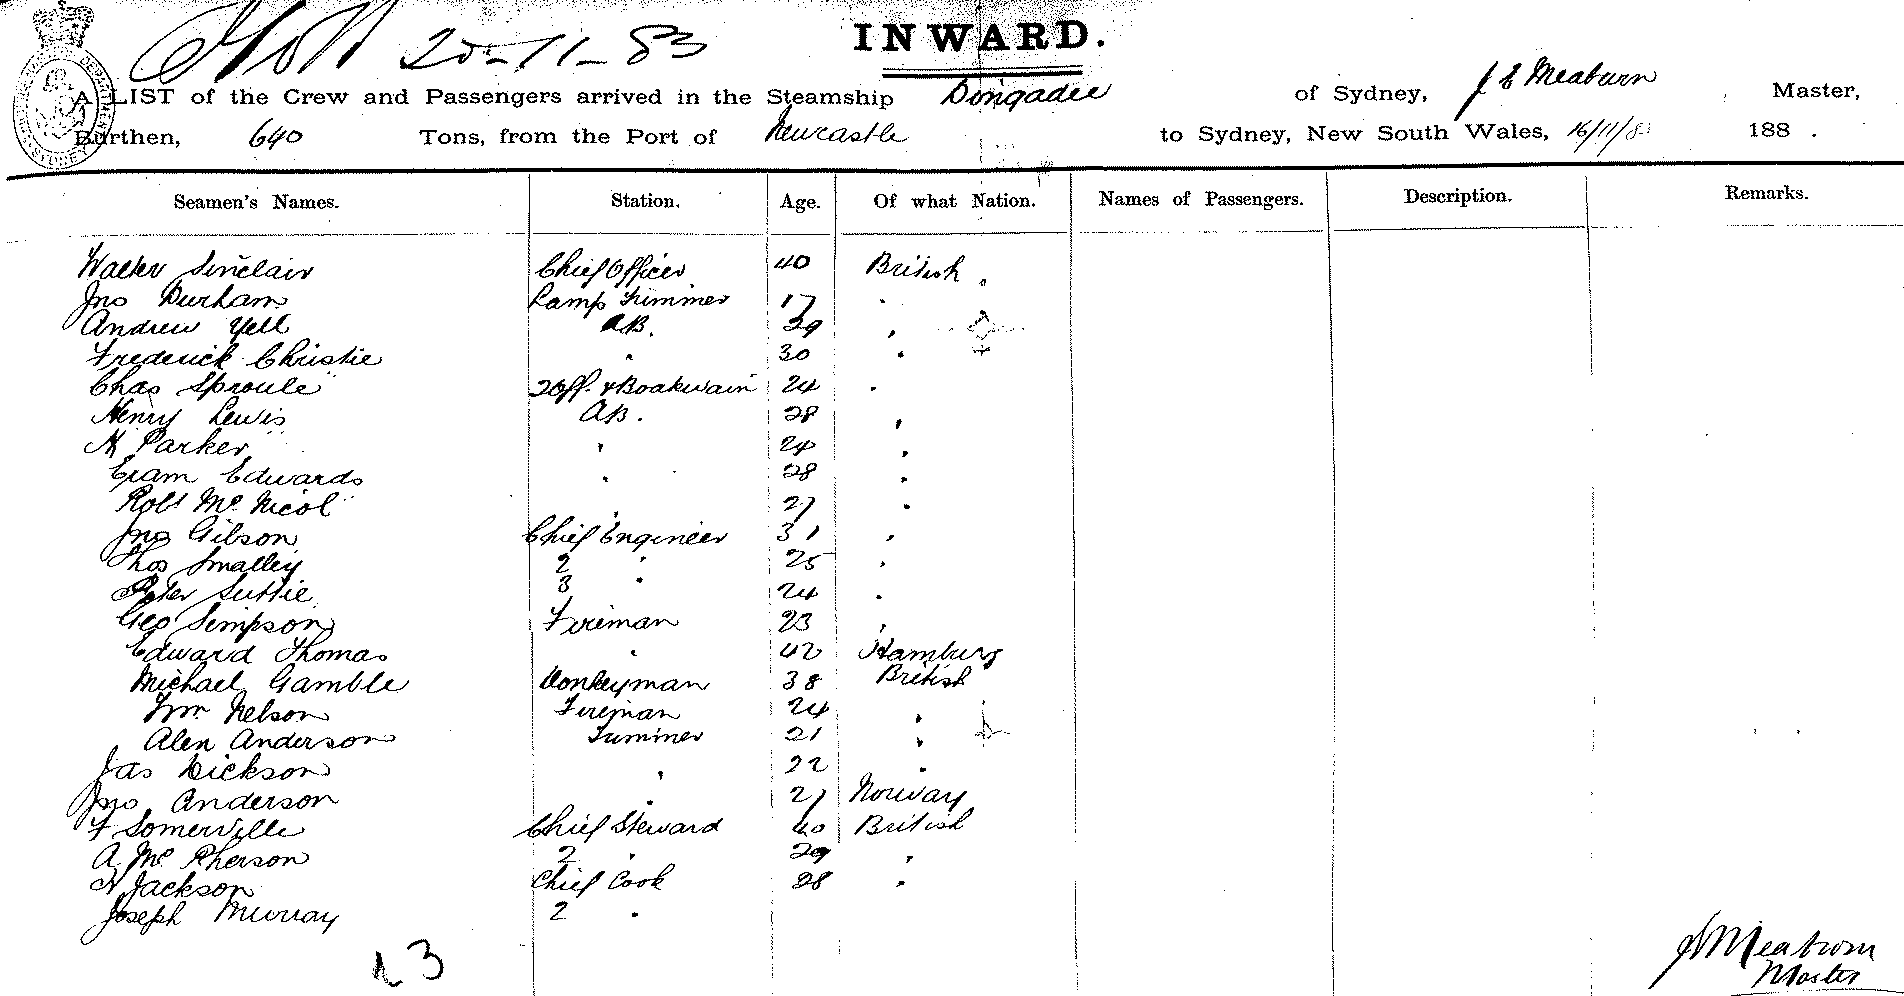 20-11-83
INWARD.
A LIST of the Crew and Passengers arrived in the Steamship Dingadee of Sydney, J E Meaburn Master,
Burthen, 640 Tons, from the Port of Newcastle to Sydney, New South Wales, 16/11/83 188 .
Seamen's Names. Station. Age. Of what Nation. Names of Passengers. Description. Remarks.
Walter Sinclair Chief Officer 40 British
Jno Durham Lamp Trimmer 17 "
Andrew Yell AB. 29 "
Frederick Christie " 30 "
Chas Sproule 2 Off. & Boatswain 24 "
Henry Lewis AB. 28 "
Parker " 24 "
Edwards " 28 "
Robt McNicol " 27 "
Jno Gibson Chief Engineer 31 "
Thos Smalley 2 " 25 "
Peter Suttie 3 " 24 "
Geo Simpson Fireman 23 "
Edward Thomas " 42 Hamburg
Michael Gamble Donkeyman 38 British
Wm Nelson Fireman 24 "
Alex Anderson Trimmer 21 "
Jas Dickson " 22 "
Jno Anderson " 27 Norway
F Somerville Chief Steward 40 British
A. McPherson 2 " 29 "
Jackson Chief Cook 28 "
Joseph Murray 2 "
23
J E Meaburn
Master